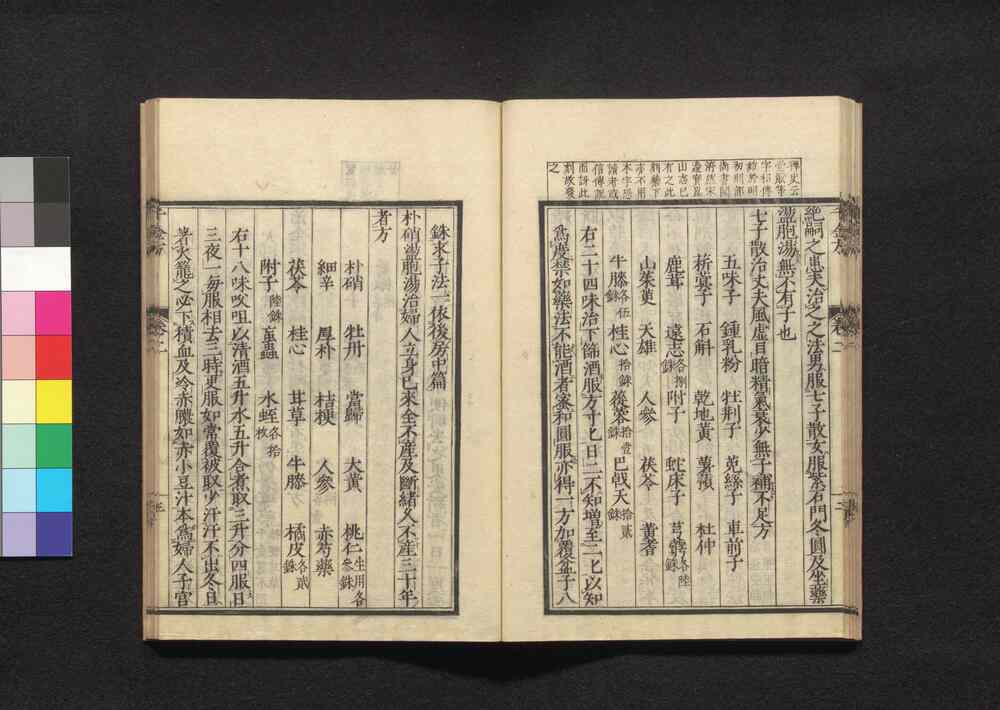 絕嗣之患夫治之之法男服七子散女服紫石門冬圓及坐藥
盪胞湯無不有子也
七子散治丈夫風虛目暗精氣衰少無子補不足方
五味子 鍾乳粉 牡荆子 菟絲子 車前子
菥蓂子 石斛 乾地黃 薯蕷 杜仲
鹿茸 遠志各捌銖 附子 蛇床子 芎藭各陸銖
山茱萸 天雄 人參 茯苓 黃耆
牛膝各伍銖 桂心拾銖 蓯蓉拾壹銖 巴戟天拾貳銖
右二十四味治下篩酒服方寸匕日二不知增至二匕以知
爲度禁如藥法不能酒者蜜和圓服亦得一方加覆盆子八
銖求子法一依後房中篇
朴硝盪胞湯治婦人立身已來全不產及斷緒久不產三十年
者方
朴硝 牡丹 當歸 大黃 桃仁生用各參銖
細辛 厚朴 桔梗 人參 赤芍藥
茯苓 桂心 甘草 牛膝 橘皮各貳銖
附子陸銖 䖟蟲 水蛭各拾枚
右十八味㕮咀以清酒五升水五升合煮取三升分四服日
三夜一每服相去三時更服如常覆被取少汗汗不出冬日
著火籠之必下積血及冷赤膿如赤小豆汁本爲婦人子宮